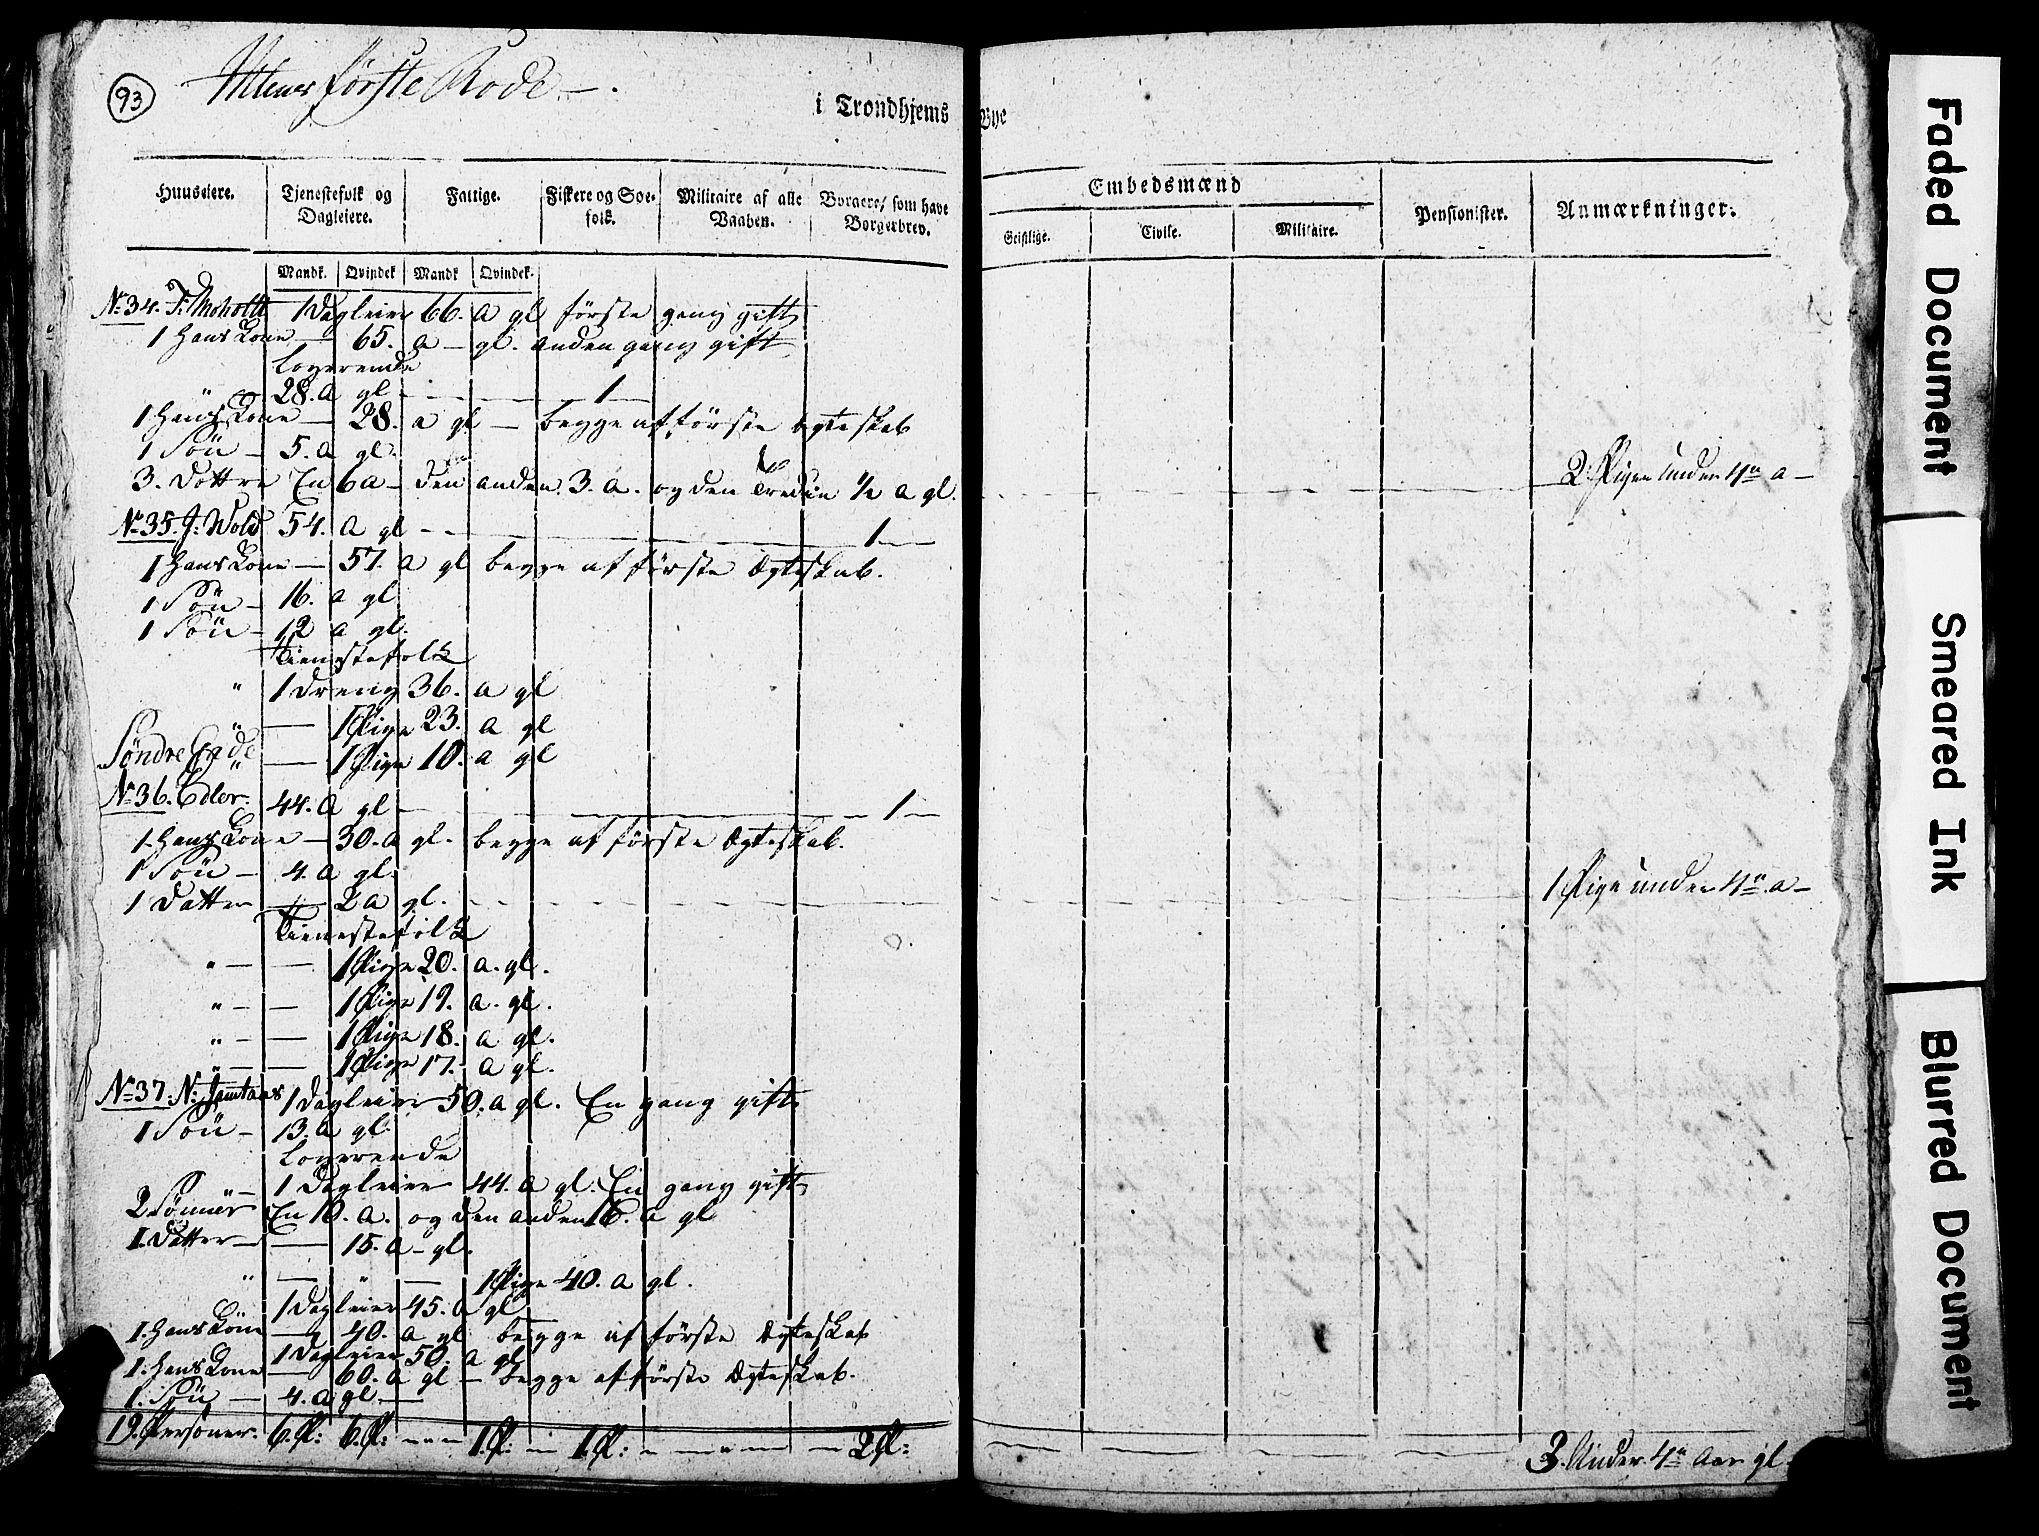 93
Ihlens første Rode
i Trondhjems Bye
Huuseiere.
Tjenestefolk og Dagleiere.
Fattige.
Fiskere og Soefolk.
Militaire af alle Vaaben.
Borgere, som have Borgerbrev.
Embedsmænd
Geistlige.
Civile.
Militaire.
Pensionister.
Anmærkninger.
Mandk. Qvindek Mandk Qvindek.
No 34. F. Moholtt 1 Dagleier 66. a gl første gang gift
1 Hans Kone — 65. a — gl. anden gang gift
Logerende
" 28. a gl — 1
1 Hans Kone — 28. a gl — begge af første egteskab
1 Søn — 5. a gl.
3. Døttre En 6 a — den anden 3. a. og den Tredie 1/2 a gl. 2 Piger under 4re a —
No 35. J. Wold 54. a gl — 1 —
1 Hans Kone — 57. a gl begge af første Egteskab.
1 Søn — 16. a gl
1 Søn — 12 a gl.
Tienestefolk
" 1 Dreng 36. a gl
" — 1 Pige 23. a gl
Søndre Ende
" — 1 Pige 10. a gl
No 36. Edler. 44. a gl — 1 —
1. Hans Kone — 30. a gl. begge af første Egteskab.
1 Søn — 4. a gl.
1 Datter — 2 a gl. 1 Pige under 4re a —
Tienestefolk
" — — 1 Pige 20. a. gl.
" — — 1 Pige 19. a. gl.
" — — 1 Pige 18. a gl.
" — — 1 Pige 17. a gl.
No 37. N: 1 Dagleier 50. a gl. En gang gift
1 Søn — 13. a gl.
Logerende
— 1 Dagleier 44. a gl. En gang gift
2 Sønner En 10. a. og den anden a gl
1. Datter — — 15. a — gl.
" — " — 1 Pige 40. a gl.
1 Dagleier 45. a gl
1. Hans Kone — 40. a gl begge af første Egteskab
1 Dagleier 50. a gl
1. Hans Kone — 60. a gl — begge af første Egteskab.
1. Søn — 4. a gl —
19. Personer. 6. P: 6. P: 1. P: 1. P: 2 P: 3. Under 4re Aar gl.
Faded Document
Smeared Ink
Blurred Document